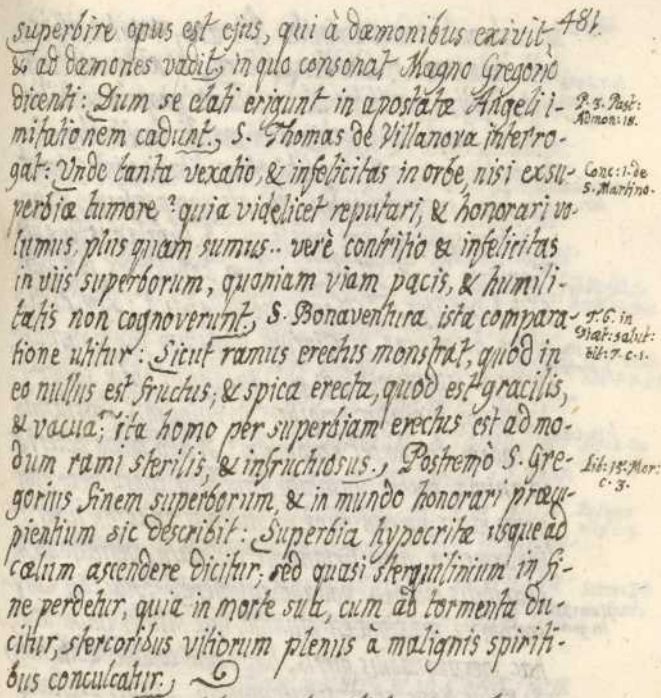 481.
superbire opus est ejus, qui à dæmonibus exivit,
& ad dæmones vadit, in quo consonat Magno Gregorio
dicenti: Dum se elati erigunt in apostatæ Angeli i-
P. 3. Past:
Admon: 18.
mitationem cadunt., S. Thomas de Villanova interro-
gat: Unde tanta vexatio, & infelicitas in orbe, nisi ex su-
Conc: 1. de
S. Martino.
perbiæ tumore? quia videlicet reputari, & honorari vo-
lumus, plus quam sumus.. verè contritio & infelicitas
in viis superborum, quoniam viam pacis, & humili-
tatis non cognoverunt., S. Bonaventura ista compara-
T. 6. in
Diæt: salut:
tit: 7. c. 1.
tione utitur: Sicut ramus erectus monstrat, quòd in
eo nullus est fructus; & spica erecta, quod est gracilis,
& vacua; ita homo per superbiam erectus est ad mo-
dum rami sterilis, & infructuosus., Postremò S. Gre-
Lib: 15. Mor:
c. 3.
gorius finem superborum, & in mundo honorari præcu-
pientium sic describit: Superbia hypocritæ usque ad
cœlum ascendere dicitur; sed quasi sterquilinium in fi-
ne perdetur, quia in morte sua, cum ad tormenta du-
citur, stercoribus vitiorum plenus à malignis spiriti-
bus conculcatur.,